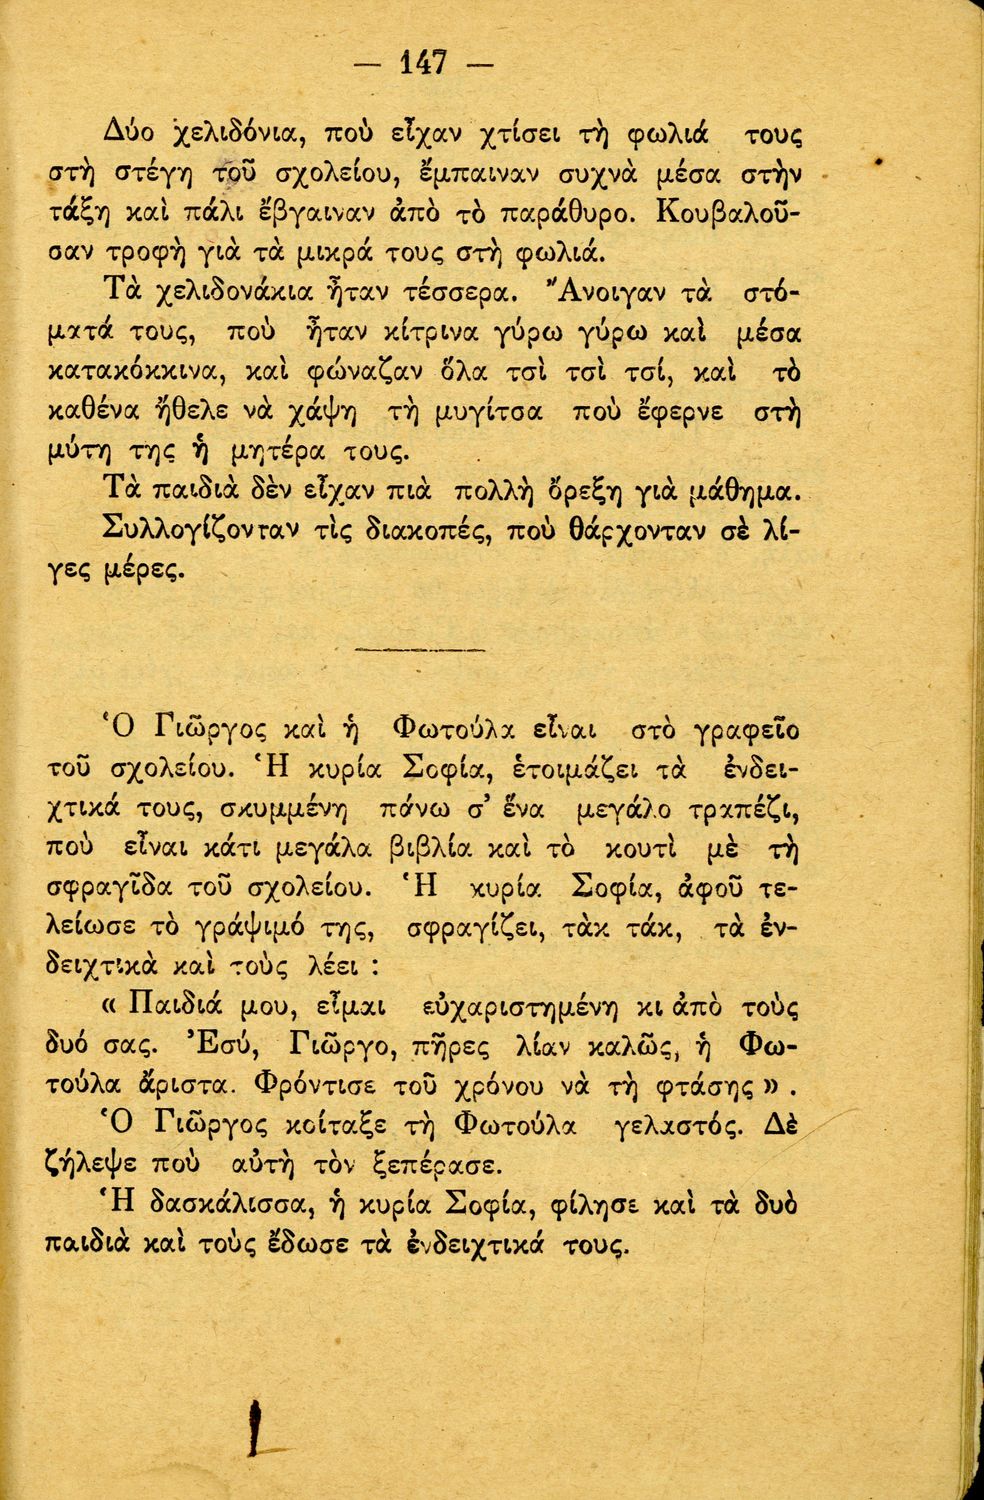 — 147 —
Δύο χελιδόνια, ποὺ εἶχαν χτίσει τὴ φωλιά τους
στὴ στέγη τοῦ σχολείου, ἔμπαιναν συχνὰ μέσα στὴν
τάξη καὶ πάλι ἔβγαιναν ἀπὸ τὸ παράθυρο. Κουβαλοῦ-
σαν τροφὴ γιὰ τὰ μικρά τους στὴ φωλιά.
Τὰ χελιδονάκια ἦταν τέσσερα. Ἄνοιγαν τὰ στό-
ματά τους, ποὺ ἦταν κίτρινα γύρω γύρω καὶ μέσα
κατακόκκινα, καὶ φώναζαν ὅλα τσὶ τσὶ τσί, καὶ τὸ
καθένα ἤθελε νὰ χάψη τὴ μυγίτσα ποὺ ἔφερνε στὴ
μύτη της ἡ μητέρα τους.
Τὰ παιδιὰ δὲν εἶχαν πιὰ πολλὴ ὄρεξη γιὰ μάθημα.
Συλλογίζονταν τὶς διακοπές, ποὺ θάρχονταν σὲ λί-
γες μέρες.
Ὁ Γιῶργος καὶ ἡ Φωτούλα εἶναι στὸ γραφεῖο
τοῦ σχολείου. Ἡ κυρία Σοφία, ἑτοιμάζει τὰ ἐνδει-
χτικά τους, σκυμμένη πάνω σ' ἕνα μεγάλο τραπέζι,
ποὺ εἶναι κάτι μεγάλα βιβλία καὶ τὸ κουτὶ μὲ τὴ
σφραγῖδα τοῦ σχολείου. Ἡ κυρία Σοφία, ἀφοῦ τε-
λείωσε τὸ γράψιμό της, σφραγίζει, τὰκ τάκ, τὰ ἐν-
δειχτικὰ καὶ τοὺς λέει :
« Παιδιά μου, εἶμαι εὐχαριστημένη κι ἀπὸ τοὺς
δυό σας. Ἐσύ, Γιῶργο, πῆρες λίαν καλῶς, ἡ Φω-
τούλα ἄριστα. Φρόντισε τοῦ χρόνου νὰ τὴ φτάσης » .
Ὁ Γιῶργος κοίταξε τὴ Φωτούλα γελαστός. Δὲ
ζήλεψε ποὺ αὐτὴ τὸν ξεπέρασε.
Ἡ δασκάλισσα, ἡ κυρία Σοφία, φίλησε καὶ τὰ δυὸ
παιδιὰ καὶ τοὺς ἔδωσε τὰ ἐνδειχτικά τους.